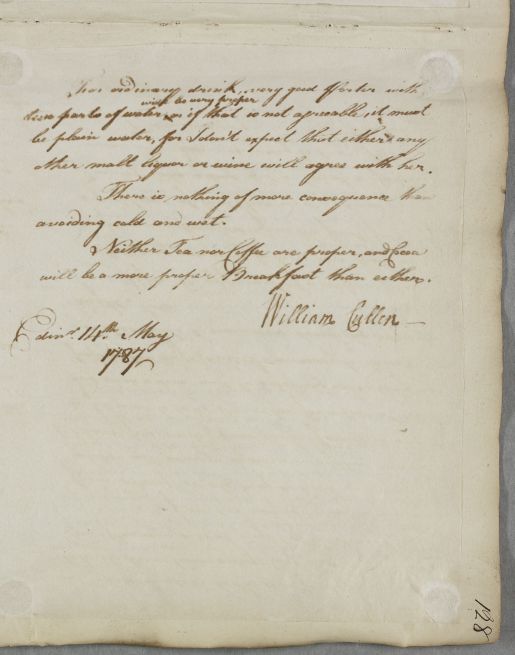 For ordinary drink, very good Porter with
will be very proper
two parts of water or if that is not agreable, it must
be plain water, for I don't expect that either any
other malt liquor or wine will agree with her.
There is nothing of more consequence than
avoiding cold and wet.
Neither Tea nor Coffee are proper, and Cocoa
will be a more proper Breakfast than either.
William Cullen
Edinr. 14th. May
1787
128